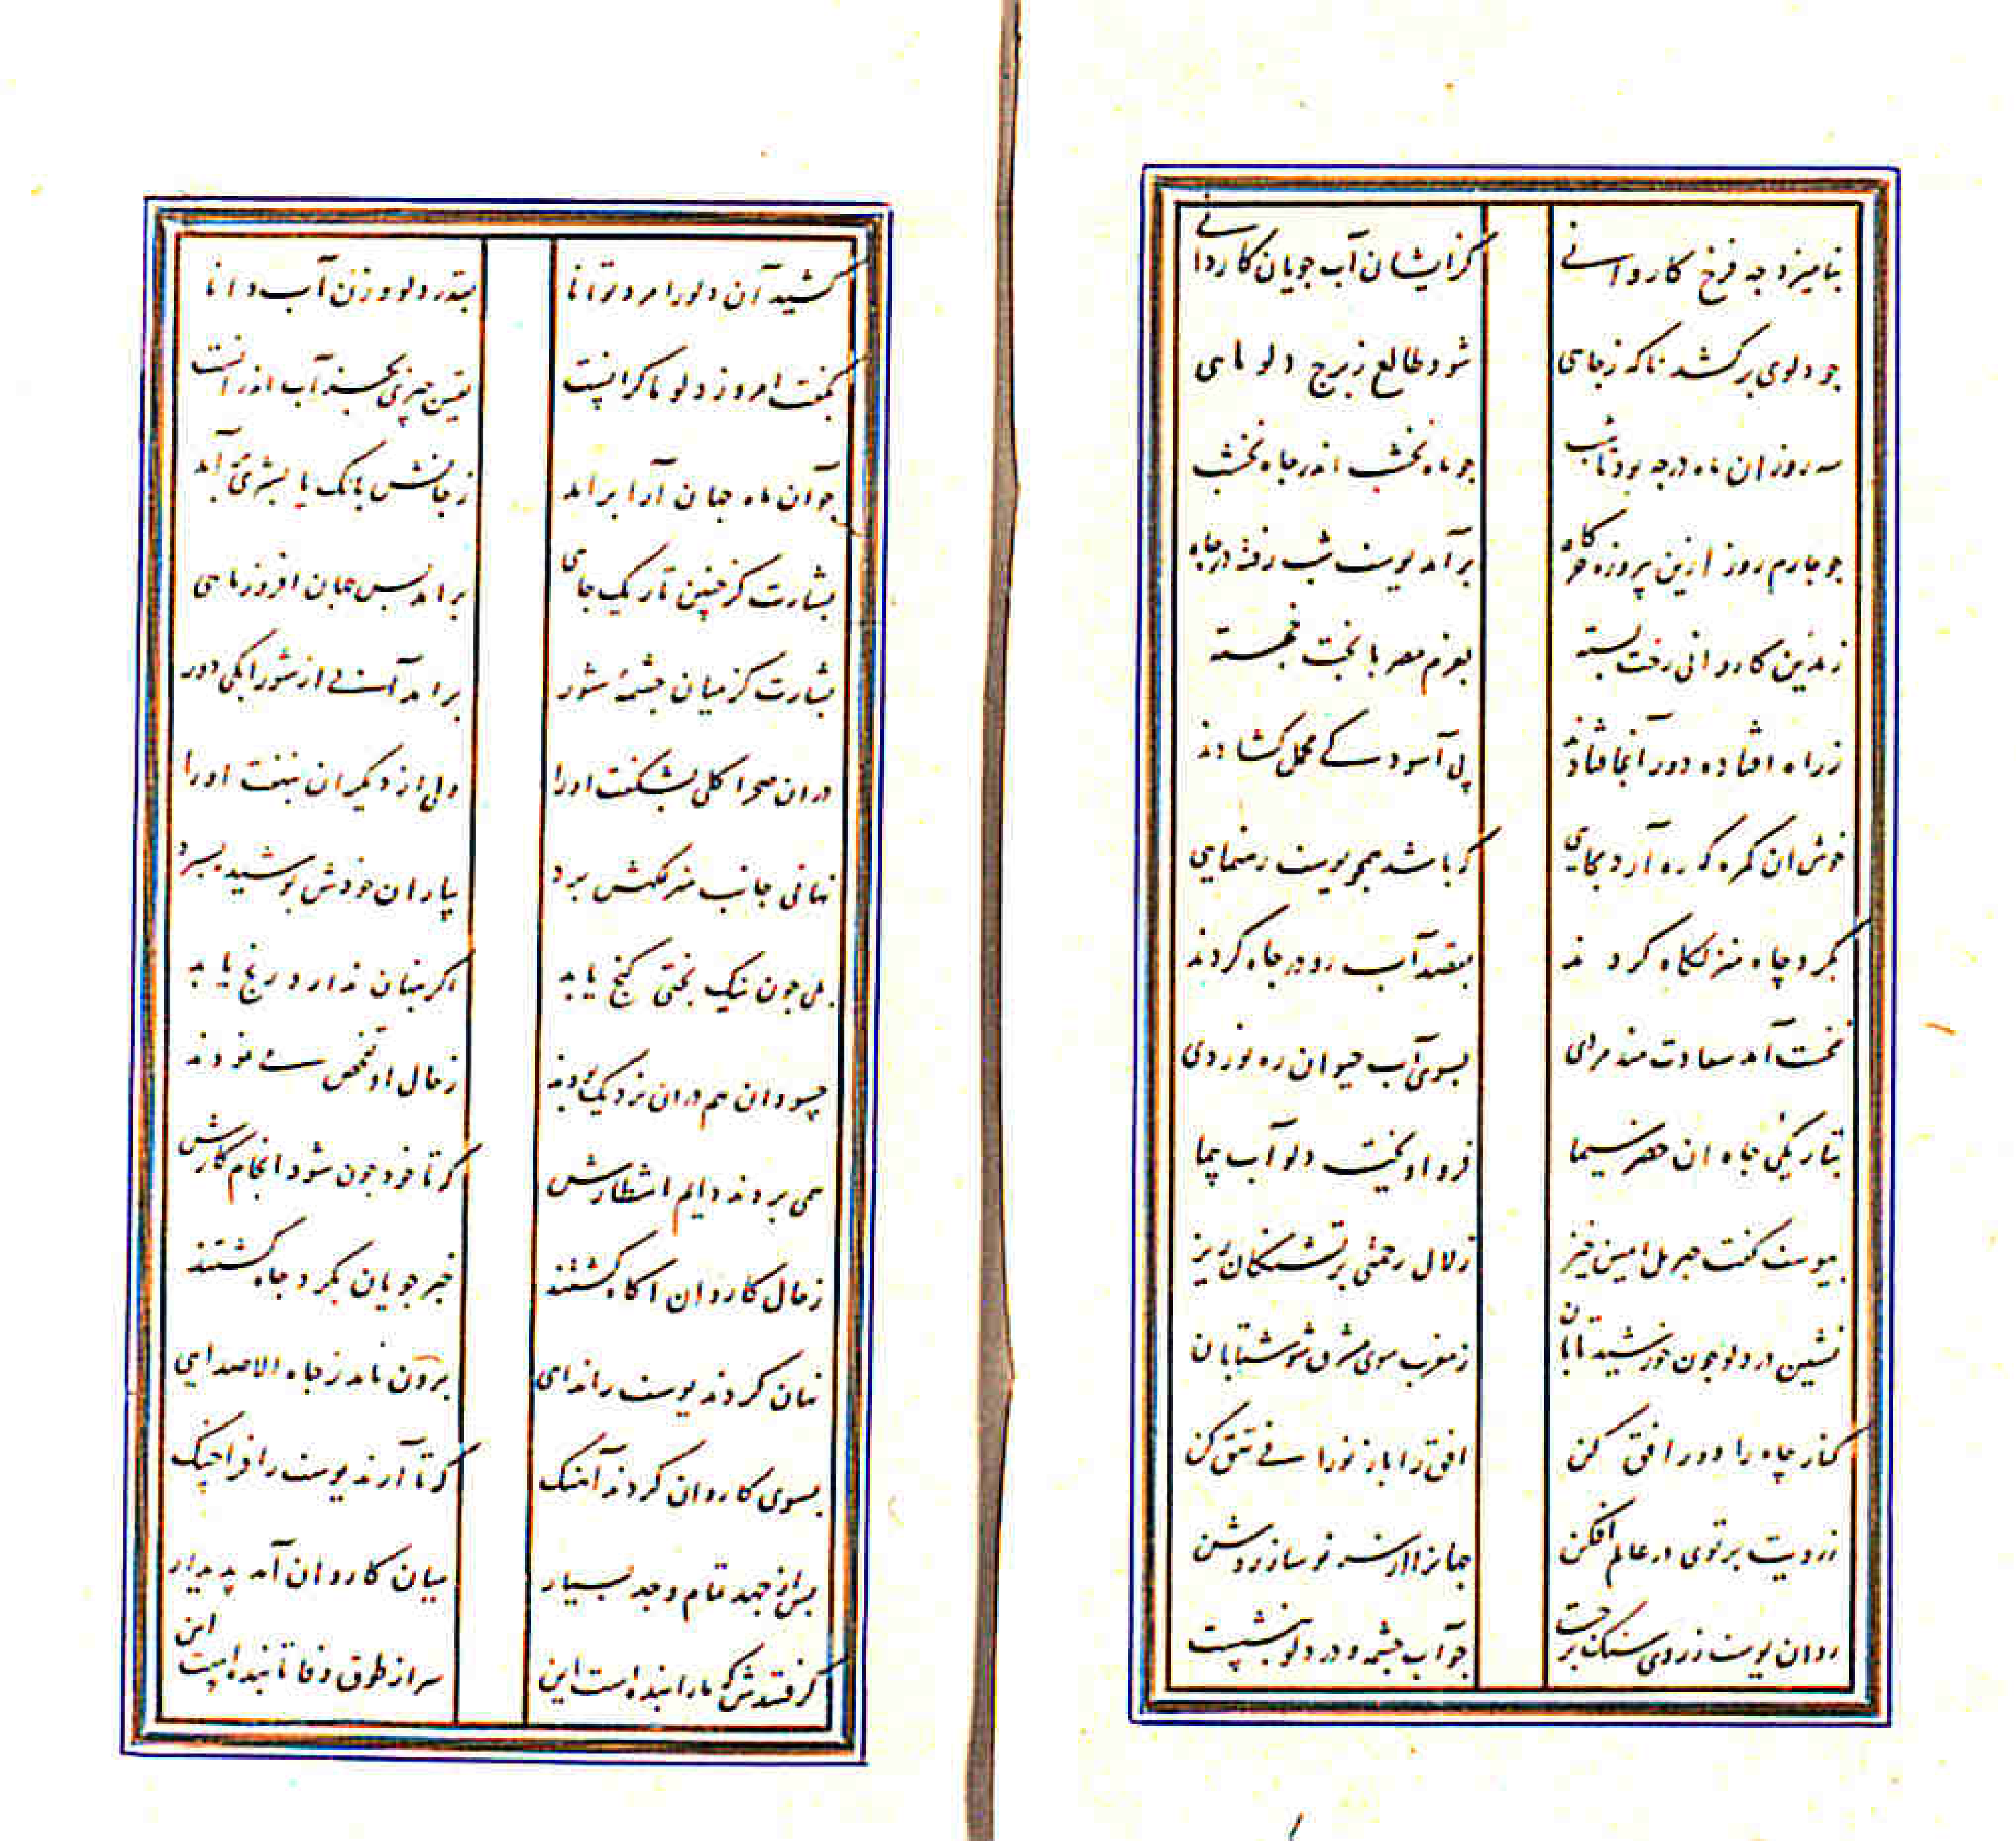 بنامیزد چه فرخ کاروانی کز ایشان آب جویان کاروانی
چو دلوی برکشد ناکه ز چاهی شود طالع ز برج دلو ماهی
سه روز ان ماه در چه بود تا شب چو ماه نخشب اندر چاه نخشب
چو چارم روز ازین پیروزه خرگاه برآمد یوسف شب رفته در چاه
ز مدین کاروانی رخت بسته بعزم مصر با بخت خجسته
ز راه افتاده دور آنجا فتادند پی آسودگی محمل کشادند
خوش ان کمره که ره آرد بجایی که باشد همچو یوسف رهنمایی
بکرد چاه منزلکاه کردند بقصد آب رو در چاه کردند
نخست آمد سعادتمند مردی بسوی آب حیوان ره نوردی
بتاریکی چاه ان خضر سیما فرو اویخت دلو آب پیما
بیوسف کفت جبریل امین خیز زلال رحمتی بر تشنکان ریز
نشین در دلو چون خورشید تابان ز مغرب سوی مشرق شو شتابان
کنار چاه را دور افق کن افق را باز نورانی تتق کن
ز رویت پرتوی در عالم افکن جهانرا از سر نو ساز روشن
روان یوسف ز روی سنک برجست چو آب چشمه و در دلو بنشست
کشید آن دلو را مرد توانا بقدر دلو و وزن آب دانا
بکفت امروز دلو ما کرانست یقین چیزی بجز آب اندر آنست
چو آن ماه جهان آرا برآمد ز جانش بانک یا بشری برآمد
بشارت کز چنین تاریک چاهی برامد بس جهان افروز ماهی
بشارت کز میان چشمهٔ شور برامد آبی از شورابکی دور
دران صحرا کلی بشکفت اورا ولی از دیکران بنهفت اورا
نهانی جانب منزلکهش برد بیاران خودش پوشیده بسپرد
بلی چون نیک بختی کنج یابد اکر پنهان ندارد رنج یابد
حسودان هم دران نزدیک بودند ز حال او تفحص می نمودند
همی بردند دایم انتظارش که تا خود چون شود انجام کارش
ز حال کاروان اکاه کشتند خبر جویان بکرد چاه کشتند
نهان کردند یوسف را ندایی برون نامد ز چاه الا صدایی
بسوی کاروان کردند آهنک که تا آرند یوسف را فرا چنک
پس از جهد تمام و جد بسیار میان کاروان آمد پدیدار
کرفتندش که مارا بنده است این سر از طوق وفا تابنده است این